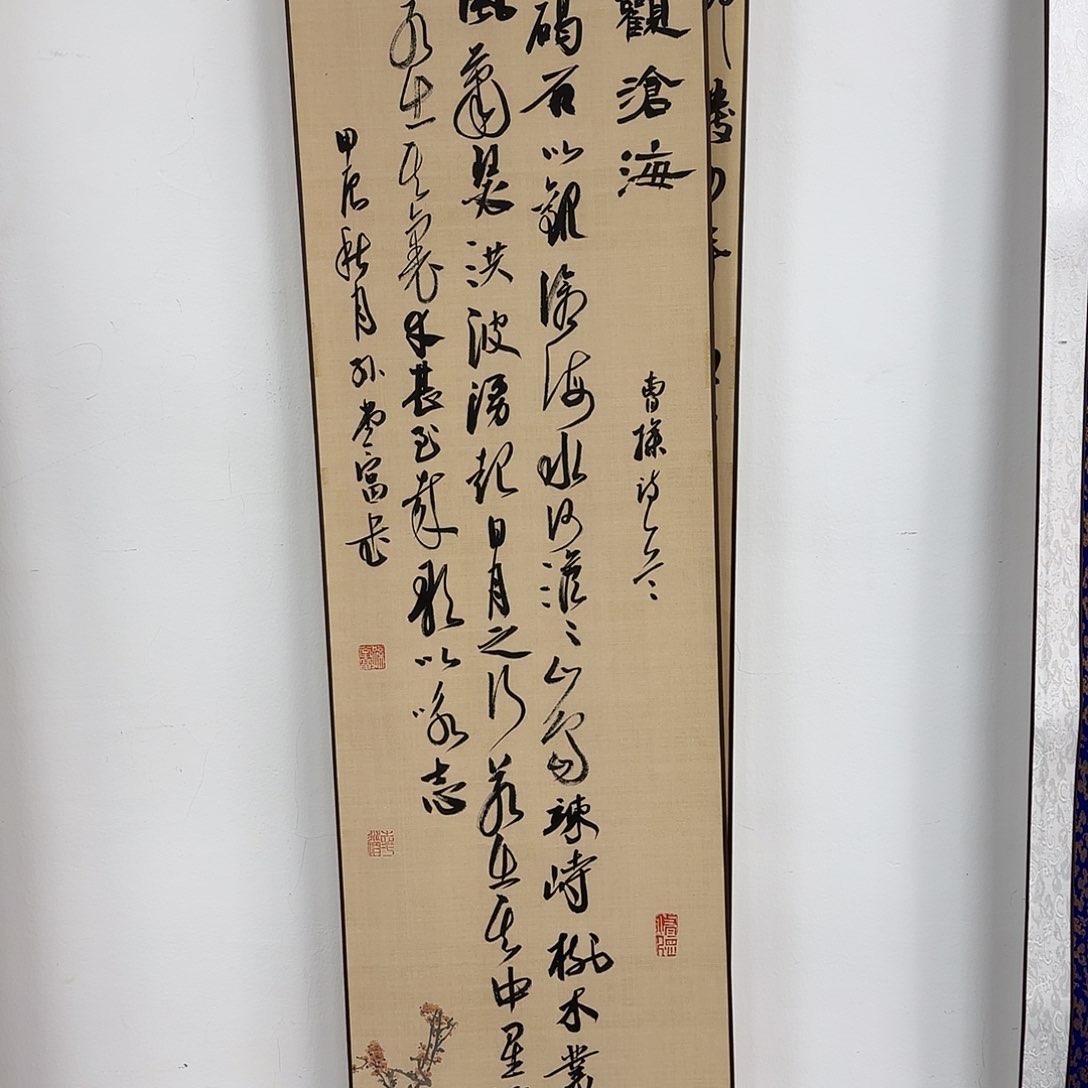 觀滄海
曹操诗
碣石以觀滄海水何澹々山島竦峙樹木叢
風蕭瑟洪波湧起日月之行若出其中星
若出其裏幸甚至哉歌以咏志
甲辰秋月孙富